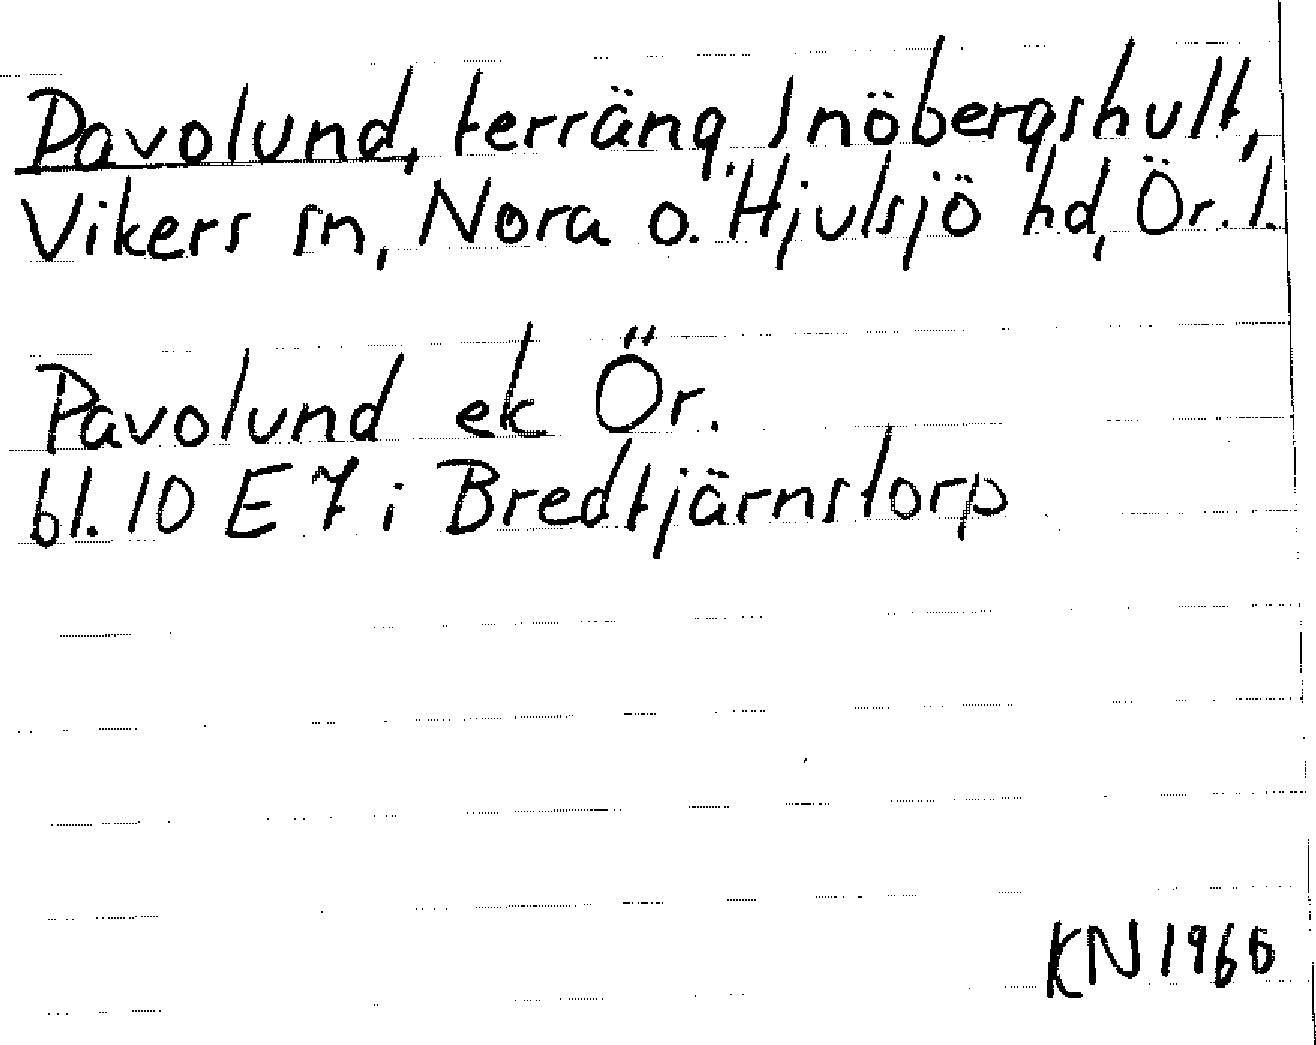 Pavolund, terräng, Snöbergshult,
Vikers sn, Nora o. Hjulsjö hd, Ör. l.
Pavolund ek Ör.
bl. 10 E 7 i Bredtjärnstorp
KN 1966